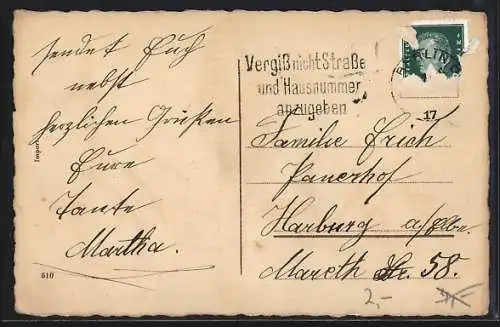 sendet Euch
nebst
herzlichen Grüßen
Eure
Tante
Martha.
510
Import
Vergiß nicht Straße
und Hausnummer
anzugeben
BERLIN
17
Familie Erich
Panerhof
Harburg a/Elbe.
Mareth Str. 58.
2,-